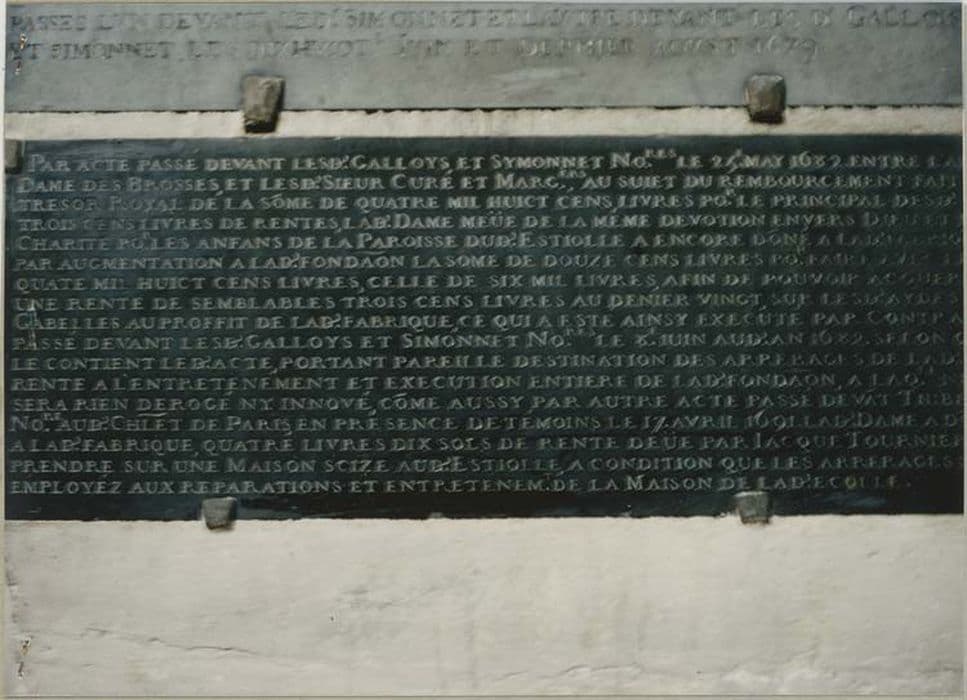 PASSES L'UN DEVANT LESD. SIMONNET ET L'AUTRE DEVANT LES D. GALLOIS
ET SIMONNET, LES DIXHUICT JUIN ET DERNIER AOUST 1679
PAR ACTE PASSÉ DEVANT LESD. GALLOYS, ET SYMONNET NO.RES LE 25 MAY 1682 ENTRE LA
DAME DES BROSSES, ET LESD. SIEUR CURÉ ET MARG.ERS, AU SUIET DU REMBOURCEMENT FAIT
TRESOR ROYAL DE LA SÕME DE QUATRE MIL HUICT CENS LIVRES PO.R LE PRINCIPAL DESD.
TROIS CENS LIVRES DE RENTES, LAD. DAME MEÜE DE LA MÉME DEVOTION ENVERS DIEU ET
CHARITÉ PO.R LES ANFANS DE LA PAROISSE DUD. ESTIOLLE A ENCORE DÕNÉ A LAD.
PAR AUGMENTATION A LAD. FONDAÕN LA SOME DE DOUZE CENS LIVRES PO.R FAIRE AVEC
QUATE MIL HUICT CENS LIVRES, CELLE DE SIX MIL LIVRES, AFIN DE POUVOIR ACQUER
UNE RENTE DE SEMBLABLES TROIS CENS LIVRES AU DENIER VINGT, SUR LESD. AYDES
GABELLES AU PROFFIT DE LAD. FABRIQUE, CE QUI A ESTÉ AINSY EXECUTÉ PAR CONTRA
PASSÉ DEVANT LESD. GALLOYS ET SIMONNET NO.RES LE 8. JUIN AUD. AN 1682. SELON Q
LE CONTIENT LED. ACTE, PORTANT PAREILLE DESTINATION DES ARRERAGES DE LAD.
RENTE A L'ENTRETENEMENT ET EXECUTION ENTIERE DE LAD. FONDAÕN, A LAQ.
SERA RIEN DEROGÉ NY INNOVÉ, CÕME AUSSY PAR AUTRE ACTE PASSÉ DEVAT
NO.RE AUD. CHLET DE PARIS, EN PRÉSENCE DE TÉMOINS LE 17. AVRIL 1691. LAD. DAME A D
A LAD. FABRIQUE, QUATRE LIVRES DIX SOLS DE RENTE DEÜE PAR IACQUE TOURNIER
PRENDRE SUR UNE MAISON SCIZE AUD. ESTIOLLE, A CONDITION QUE LES ARRERAGES
EMPLOYEZ AUX REPARATIONS ET ENTRETENEM. DE LA MAISON DE LAD. ECOLLE.